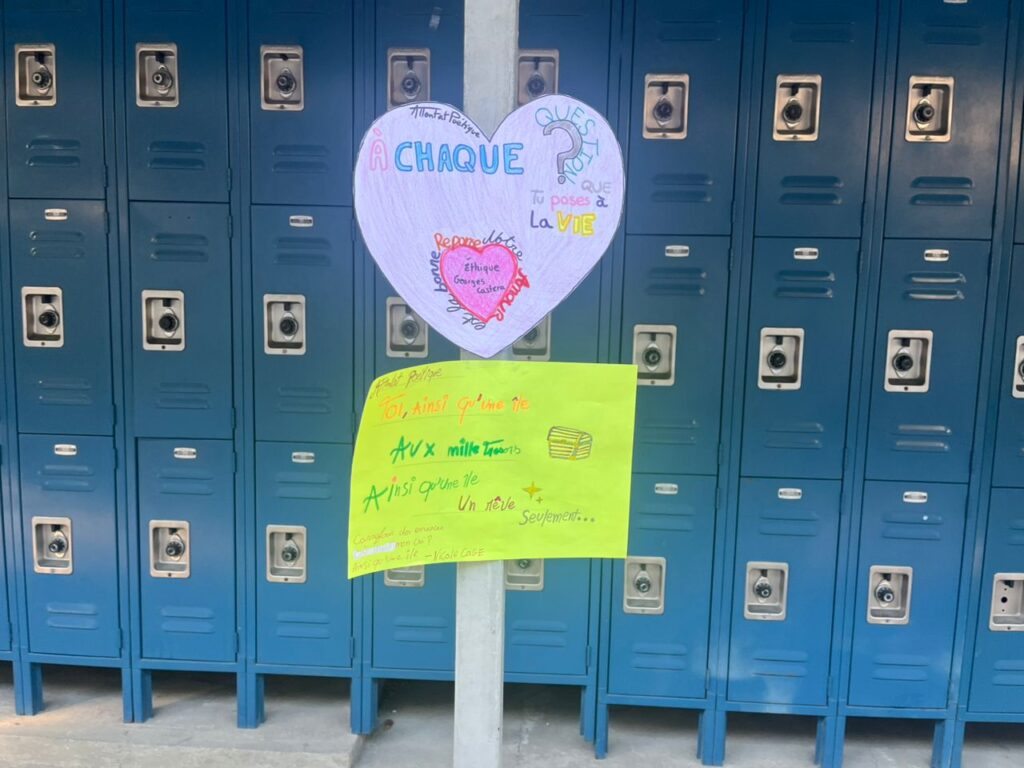 Attentat Poétique
À CHAQUE
QUESTION ?
QUE
Tu poses à
La VIE
Notre Amour est la bonne Réponse
Éthique
Georges
Castera
Attentat Poétique
TOI, Ainsi qu'une île
AUX mille Trésors
Ainsi qu'une île
Un rêve
Seulement...
Ainsi qu'une île - Nicole CAGE